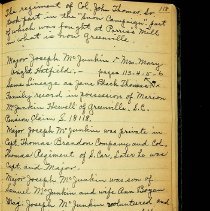 118
the regiment of Col. John Thomas. So
took part in the "Snow Campaign" part
of which was fought at Parris's Mill
what is now Greenville
Major Joseph McJunkin & Mrs. Mary
Hatfield. pages 113-4-5-6
Same lineage as Jane Black Thomas
Family record in possession of Marion
McJunkin Howell of Greenville, S.C.
Pension Claim S. 18118.
Major Joseph McJunkin was private in
Capt. Thomas Brandon Company and Col.
Thomas Regiment of S. Car. Later he was
Capt. and Major.
Major Joseph McJunkin was son of
Samuel McJunkin and wife Ann Bogan
Joseph McJunkin volunteered and